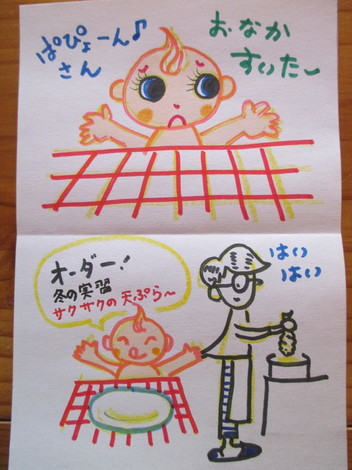 ぱぴょーん♪
さん
おなか
すいたー
オーダー!
冬の実習
サクサクの天ぷら～
はい
はい